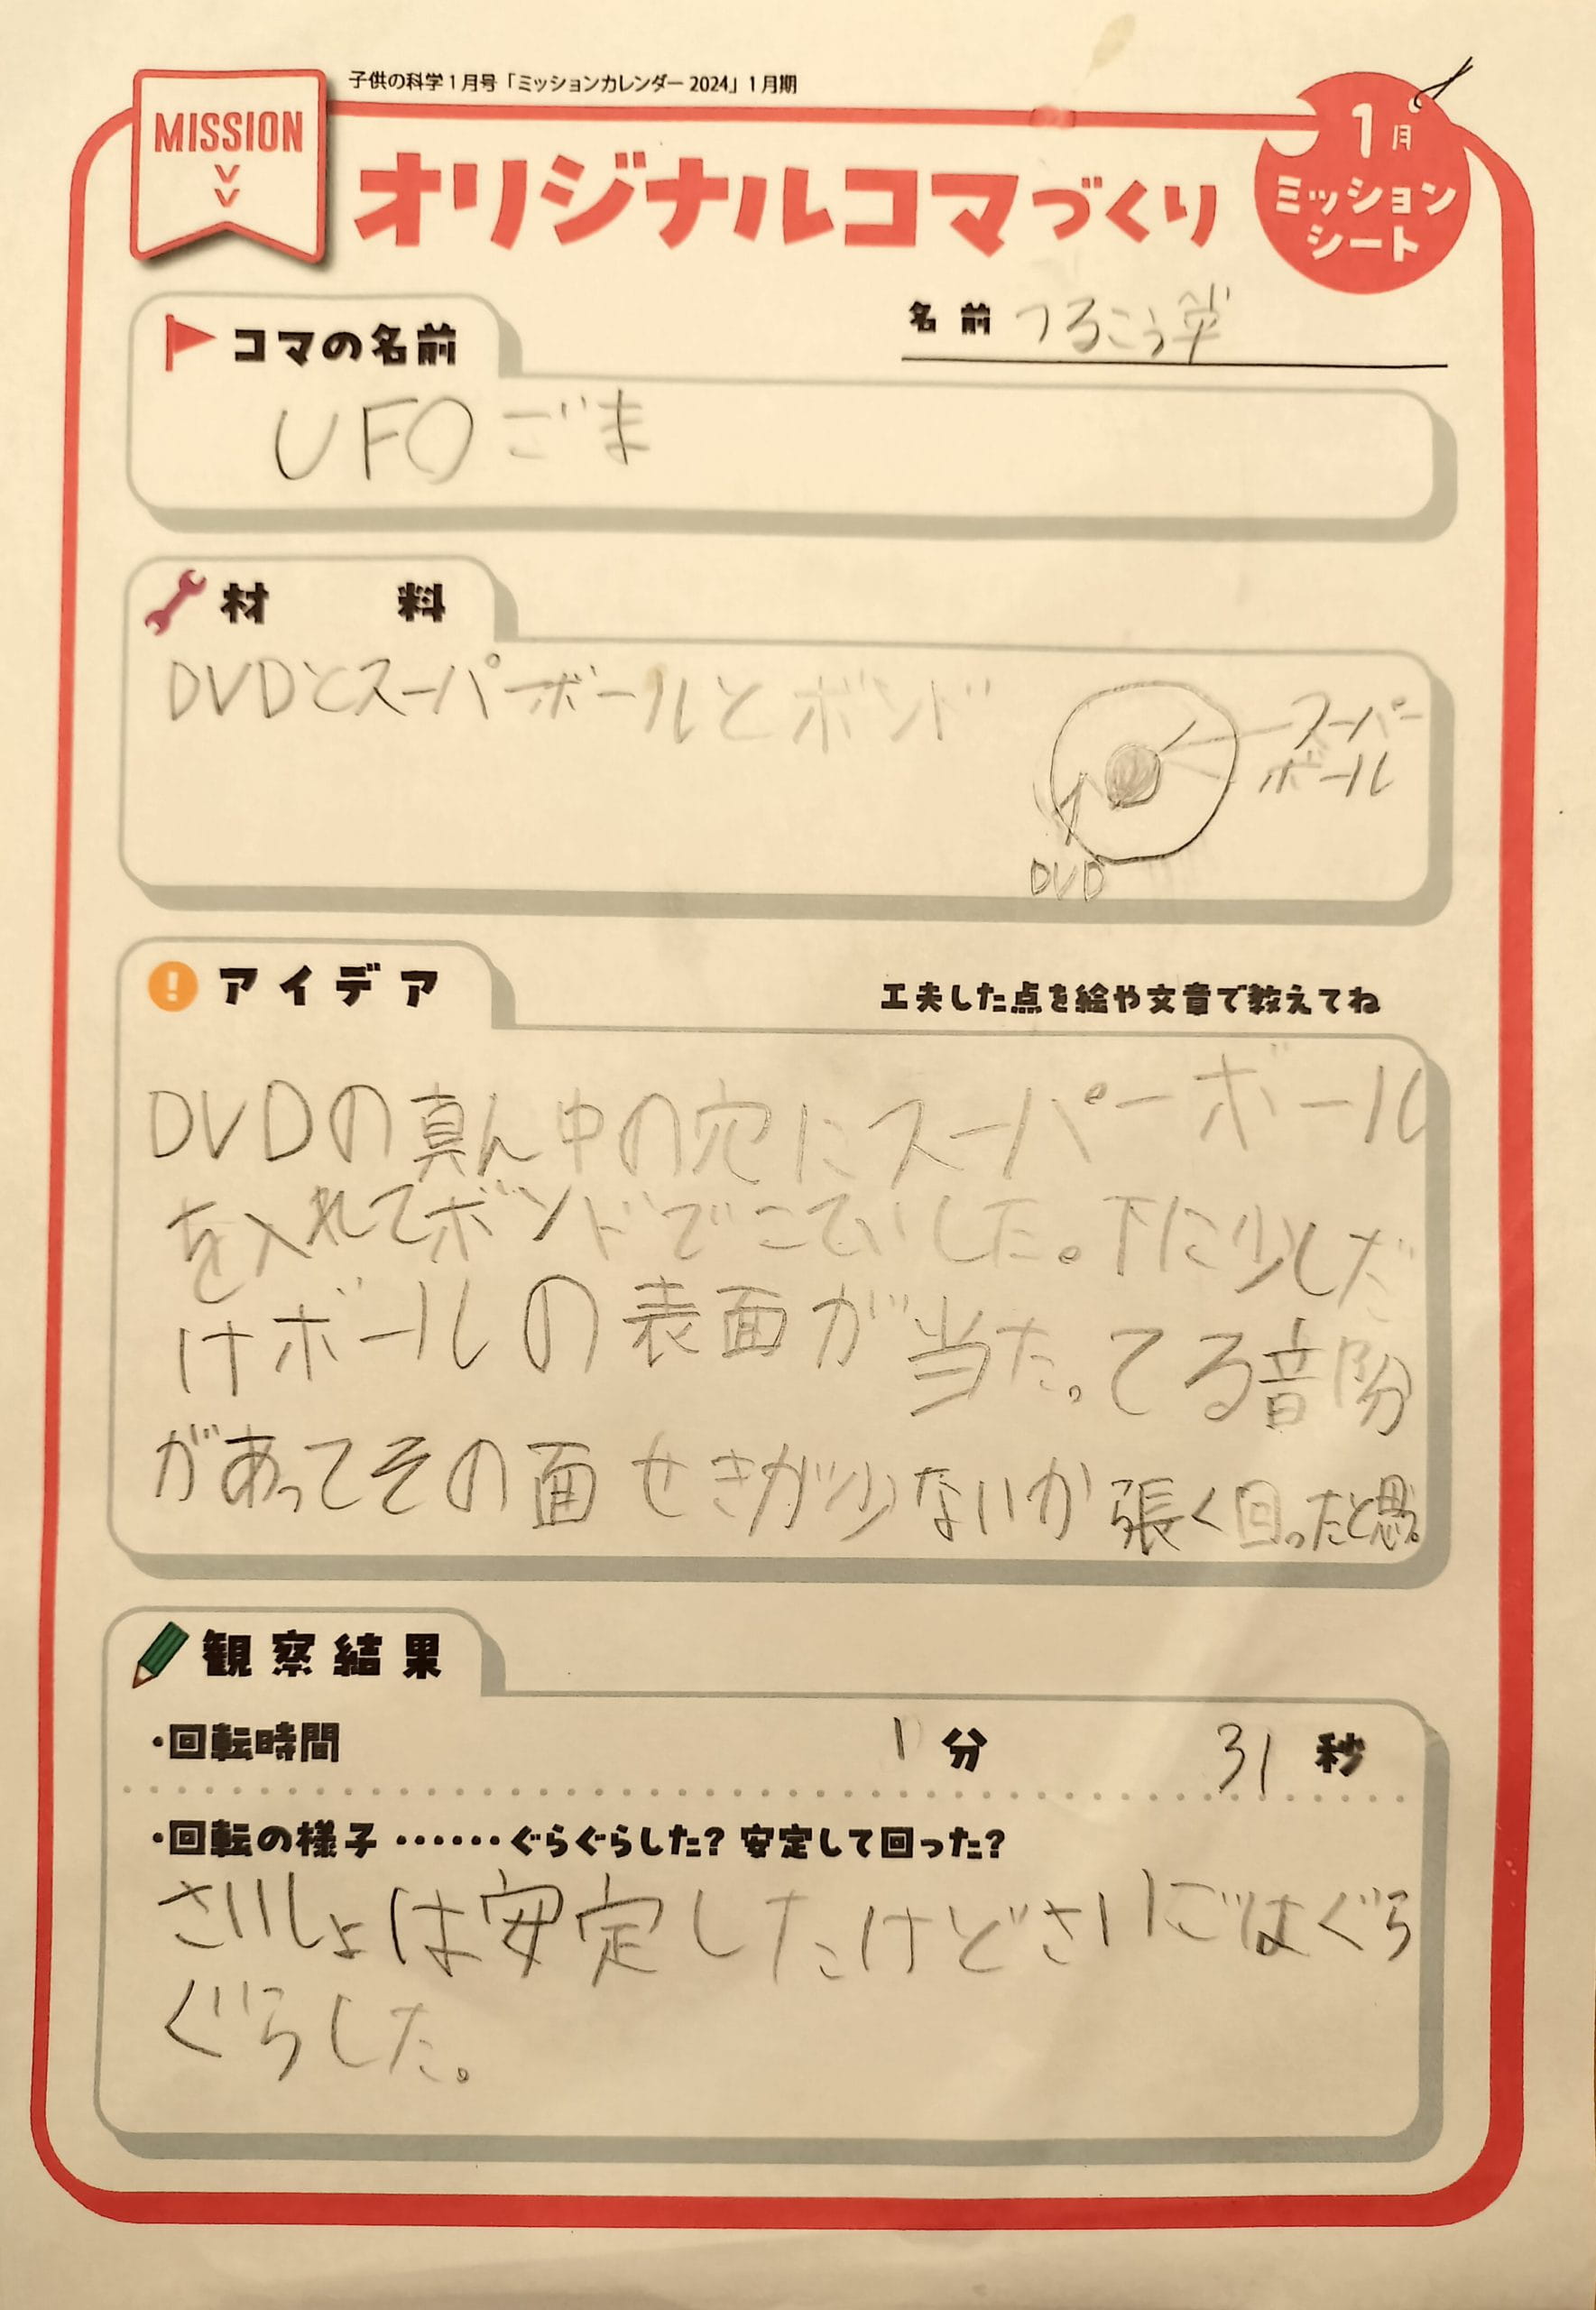 子供の科学1月号「ミッションカレンダー2024」1月期
MISSION
オリジナルコマづくり
1月
ミッション
シート
名前 つるこう
コマの名前
UFOごま
材料
DVDとスーパーボールとボンド
スーパー
ボール
DVD
アイデア
工夫した点を絵や文章で教えてね
DVDの真ん中の穴にスーパーボール
を入れてボンドでこていした。下に少しだ
けボールの表面が当たってる音分
があってその面せきが少ないから長く回ったと思う。
観察結果
・回転時間 1分 31秒
・回転の様子……ぐらぐらした?安定して回った?
さいしょは安定したけどさいごはぐら
ぐらした。